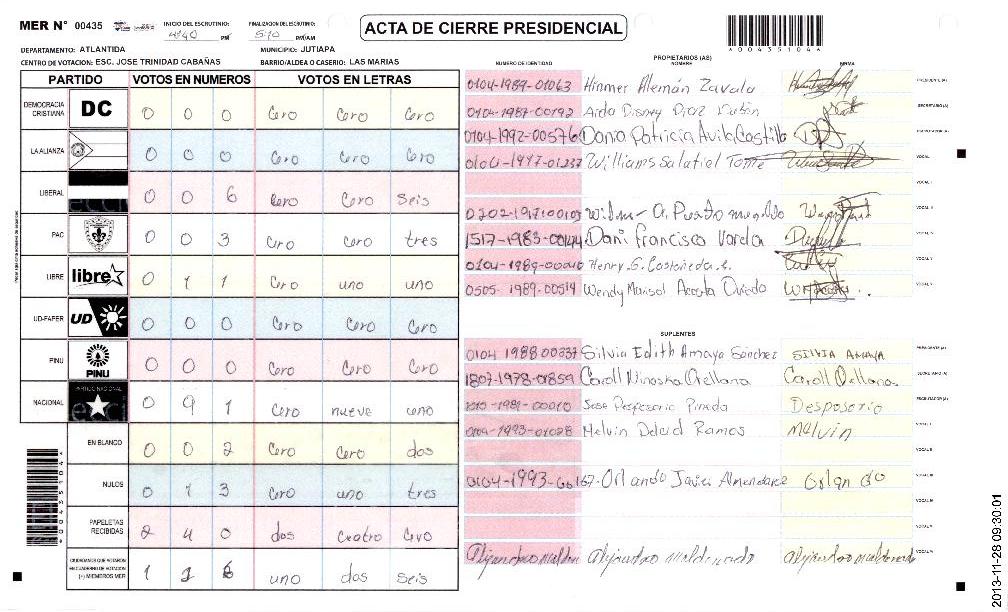 MER N° 00435 INICIO DEL ESCRUTINIO: 4:40 PM FINALIZACION DEL ESCRUTINIO: 5:10 PM/AM ACTA DE CIERRE PRESIDENCIAL
0004351044
DEPARTAMENTO: ATLANTIDA MUNICIPIO: JUTIAPA
CENTRO DE VOTACION: ESC. JOSE TRINIDAD CABAÑAS BARRIO/ALDEA O CASERIO: LAS MARIAS
PARTIDO VOTOS EN NUMEROS VOTOS EN LETRAS
DEMOCRACIA CRISTIANA DC 0 0 0 Cero Cero Cero
LA ALIANZA 0 0 0 Cero Cero Cero
LIBERAL 0 0 6 Cero Cero Seis
PAC 0 0 3 Cero Cero tres
LIBRE libre 0 1 1 Cero uno uno
UD-FAPER UD 0 0 0 Cero Cero Cero
PINU PINU 0 0 0 Cero Cero Cero
NACIONAL PARTIDO NACIONAL 0 9 1 Cero nueve uno
EN BLANCO 0 0 2 Cero Cero dos
NULOS 0 1 3 Cero uno tres
PAPELETAS RECIBIDAS 2 4 0 dos cuatro Cero
CIUDADANOS QUE VOTARON EN CUADERNO DE VOTACION (+) MIEMBROS MER 1 2 6 uno dos seis
PROPIETARIOS (AS)
NUMERO DE IDENTIDAD NOMBRE FIRMA
0104-1989-01063 Hinmer Alemán Zavala PRESIDENTE (A)
0104-1987-00192 Disney Diaz SECRETARIO (A)
0104-1992-00576 Dana Patricia Avila Castillo ESCRUTADOR (A)
Williams Salatiel VOCAL I
VOCAL II
VOCAL III
1517-1983-00144 Dani Francisco Varela VOCAL IV
0104-1989-00040 Henry S. Castañeda VOCAL V
0505-1989-00514 Wendy Marisol Acosta Oviedo VOCAL VI
SUPLENTES
0104 1988 00337 Silvia Edith Amaya Sanchez SILVIA AMAYA PRESIDENTE (A)
1807-1978-01859 Caroll Ninoska Orellana Caroll Orellana SECRETARIO (A)
Jose Desposorio Pineda Desposorio ESCRUTADOR (A)
0104-1993-01028 Melvin Ramos Melvin VOCAL I
VOCAL II
0104-1993- Orlando Javier Almendarez Orlando VOCAL III
VOCAL IV
VOCAL V
Alejandro Maldonado Alejandro Maldonado VOCAL VI
2013-11-28 09:30:01